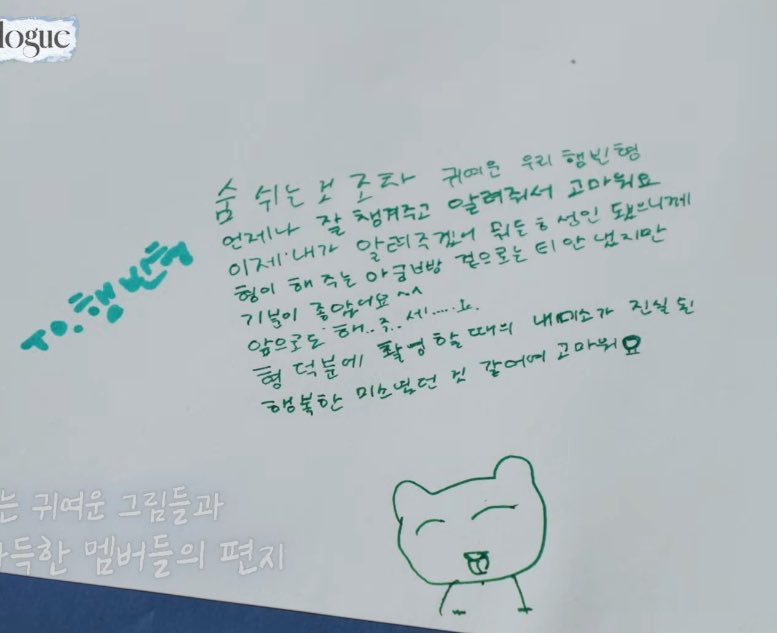 logue
TO. 햄빈형
숨 쉬는 것 조차 귀여운 우리 햄빈형
언제나 잘 챙겨주고 알려줘서 고마워요
이제 내가 알려주겠어 뭐든 ㅎ 성인 됐으니께
형이 해 주는 아굼빵 겉으로는 티 안 냈지만
기분이 좋답니요 ^^
앞으로도 해..주..세.....요.
형 덕분에 촬영할 때의 내 미소가 진실 된
행복한 미소였던 것 같아여 고마워요
는 귀여운 그림들과
가득한 멤버들의 편지